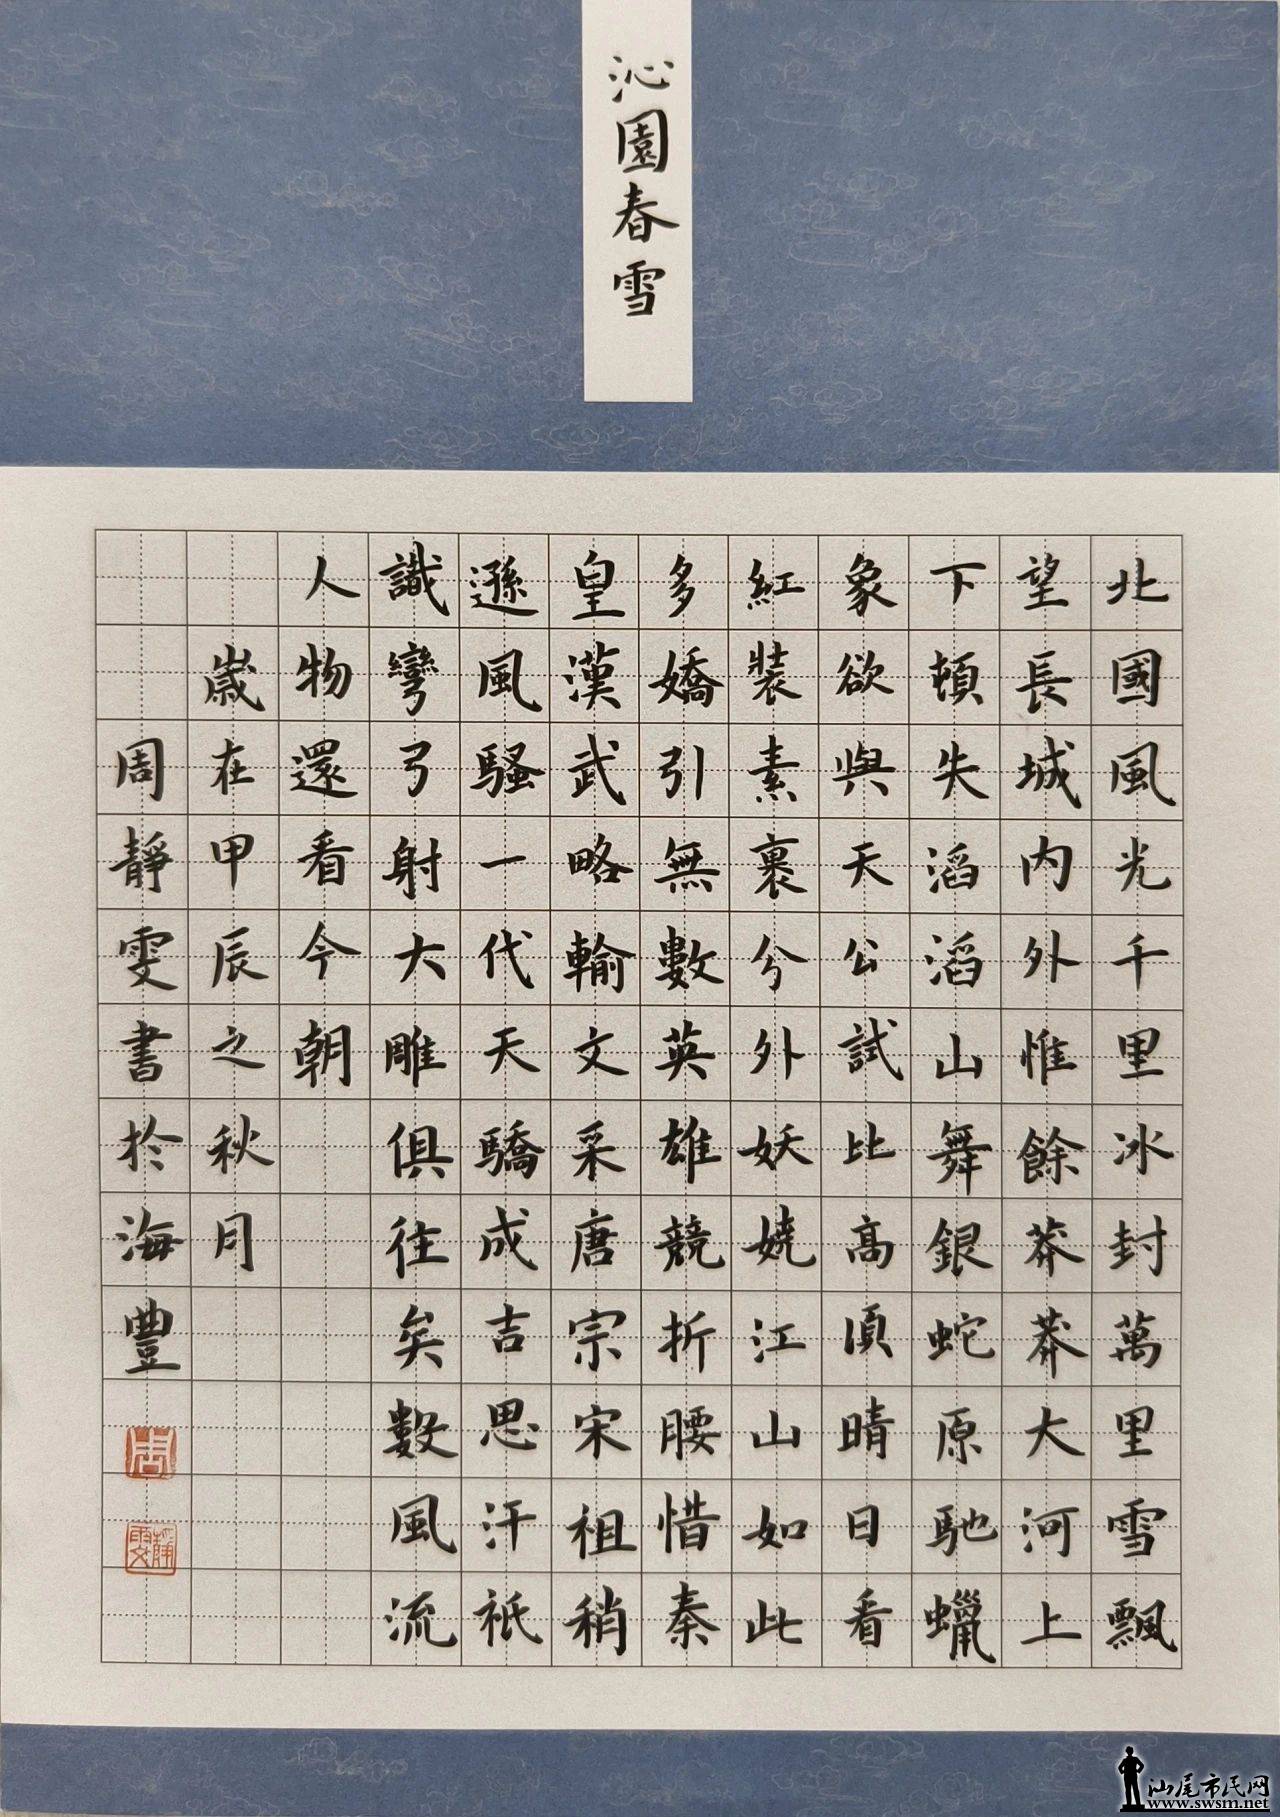 沁園春雪
北國風光千里冰封萬里雪飄
望長城内外惟餘莽莽大河上
下頓失滔滔山舞銀蛇原馳蠟
象欲與天公試比高須晴日看
紅裝素裹兮外妖娆江山如此
多嬌引無數英雄競折腰惜秦
皇漢武略輸文采唐宗宋祖稍
遜風騷一代天驕成吉思汗祇
識彎弓射大雕俱往矣數風流
人物還看今朝
歲在甲辰之秋月
周靜雯書於海豐
周
靜雯
汕尾市民网
www.swsm.net